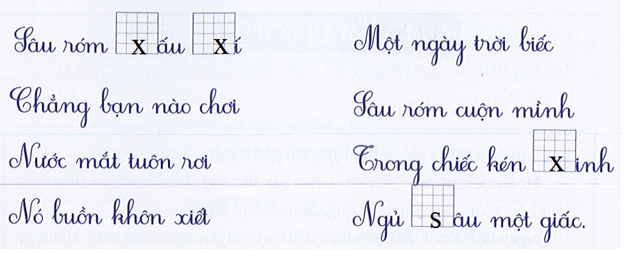 Sâu róm xấu xí
Chẳng bạn nào chơi
Nước mắt tuôn rơi
Nó buồn khôn xiết
Một ngày trời biếc
Sâu róm cuộn mình
Trong chiếc kén xinh
Ngủ sâu một giấc.